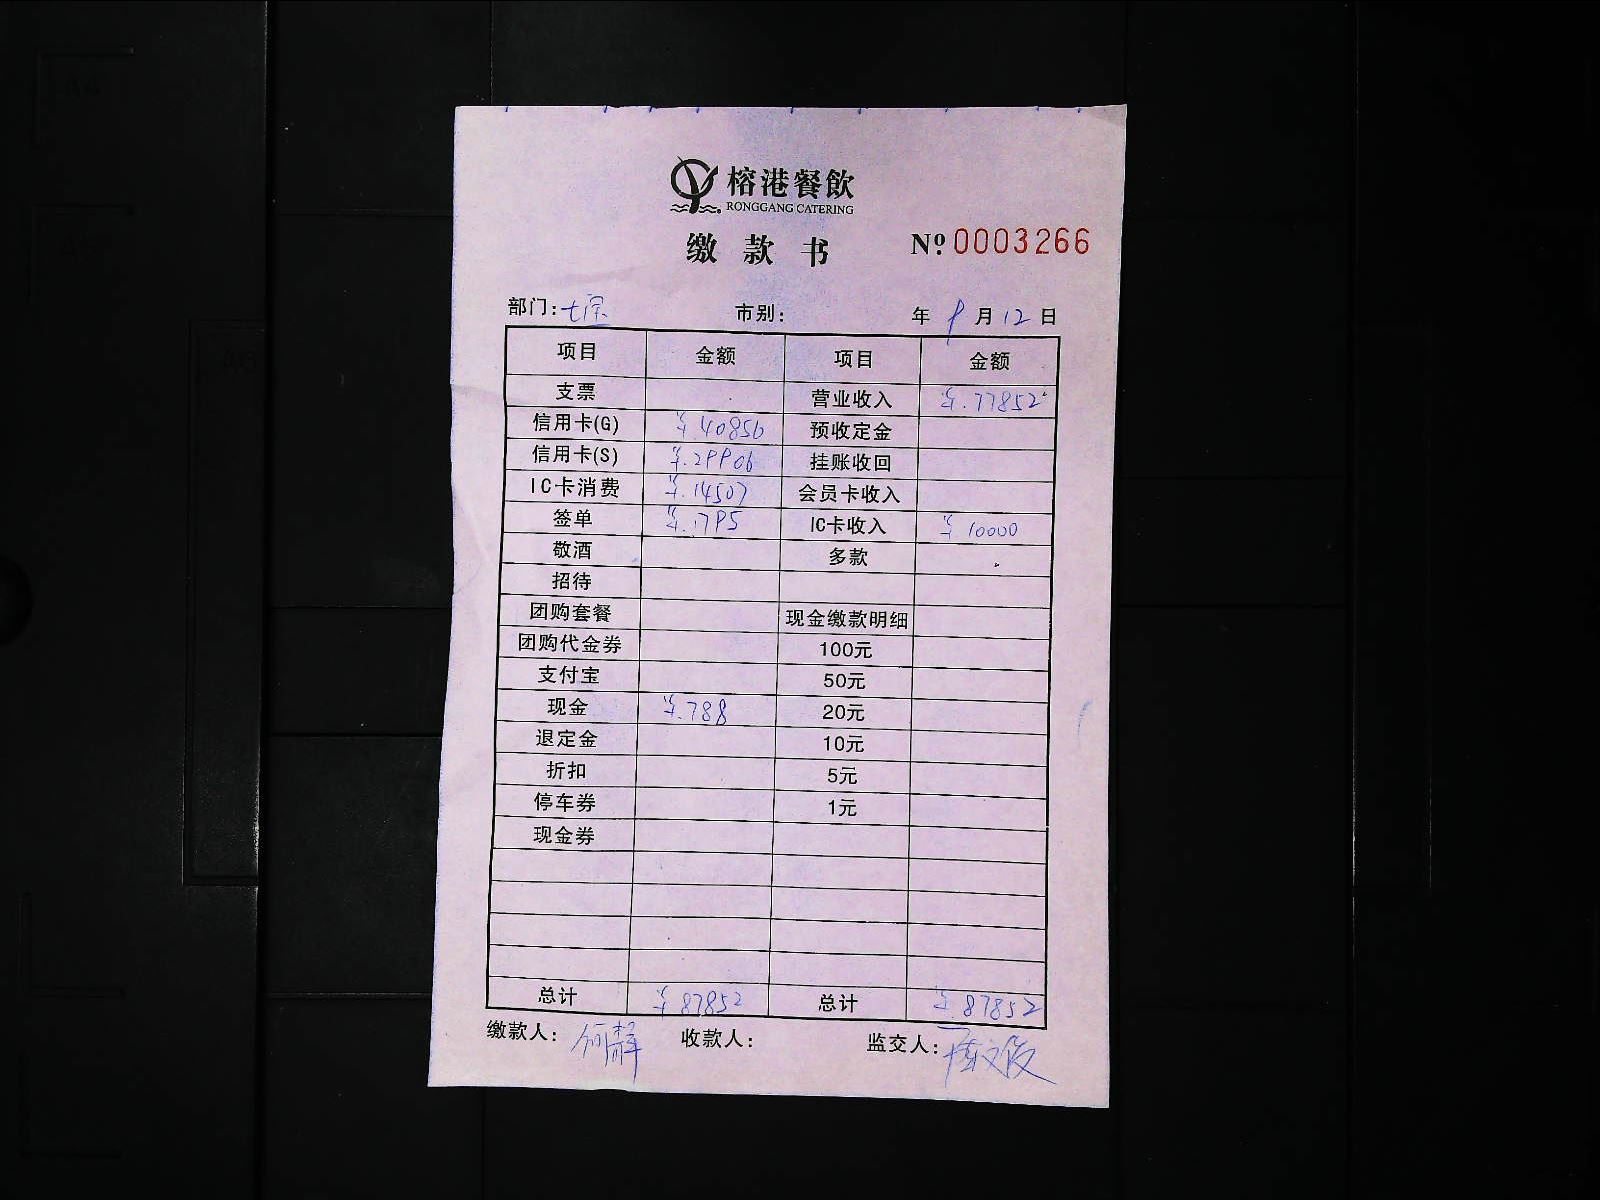 榕港餐飲
RONGGANG CATERING
缴款书 Nº 0003266
部门: 七宝 市别: 年 9 月 12 日
项目 金额 项目 金额
支票 营业收入 ¥.77852
信用卡(G) ¥.40856 预收定金
信用卡(S) ¥.29906 挂账收回
IC卡消费 ¥.14507 会员卡收入
签单 ¥.1795 IC卡收入 ¥10000
敬酒 多款
招待
团购套餐 现金缴款明细
团购代金券 100元
支付宝 50元
现金 ¥.788 20元
退定金 10元
折扣 5元
停车券 1元
现金券
总计 ¥87852 总计 ¥.87852
缴款人: 何静 收款人: 监交人: